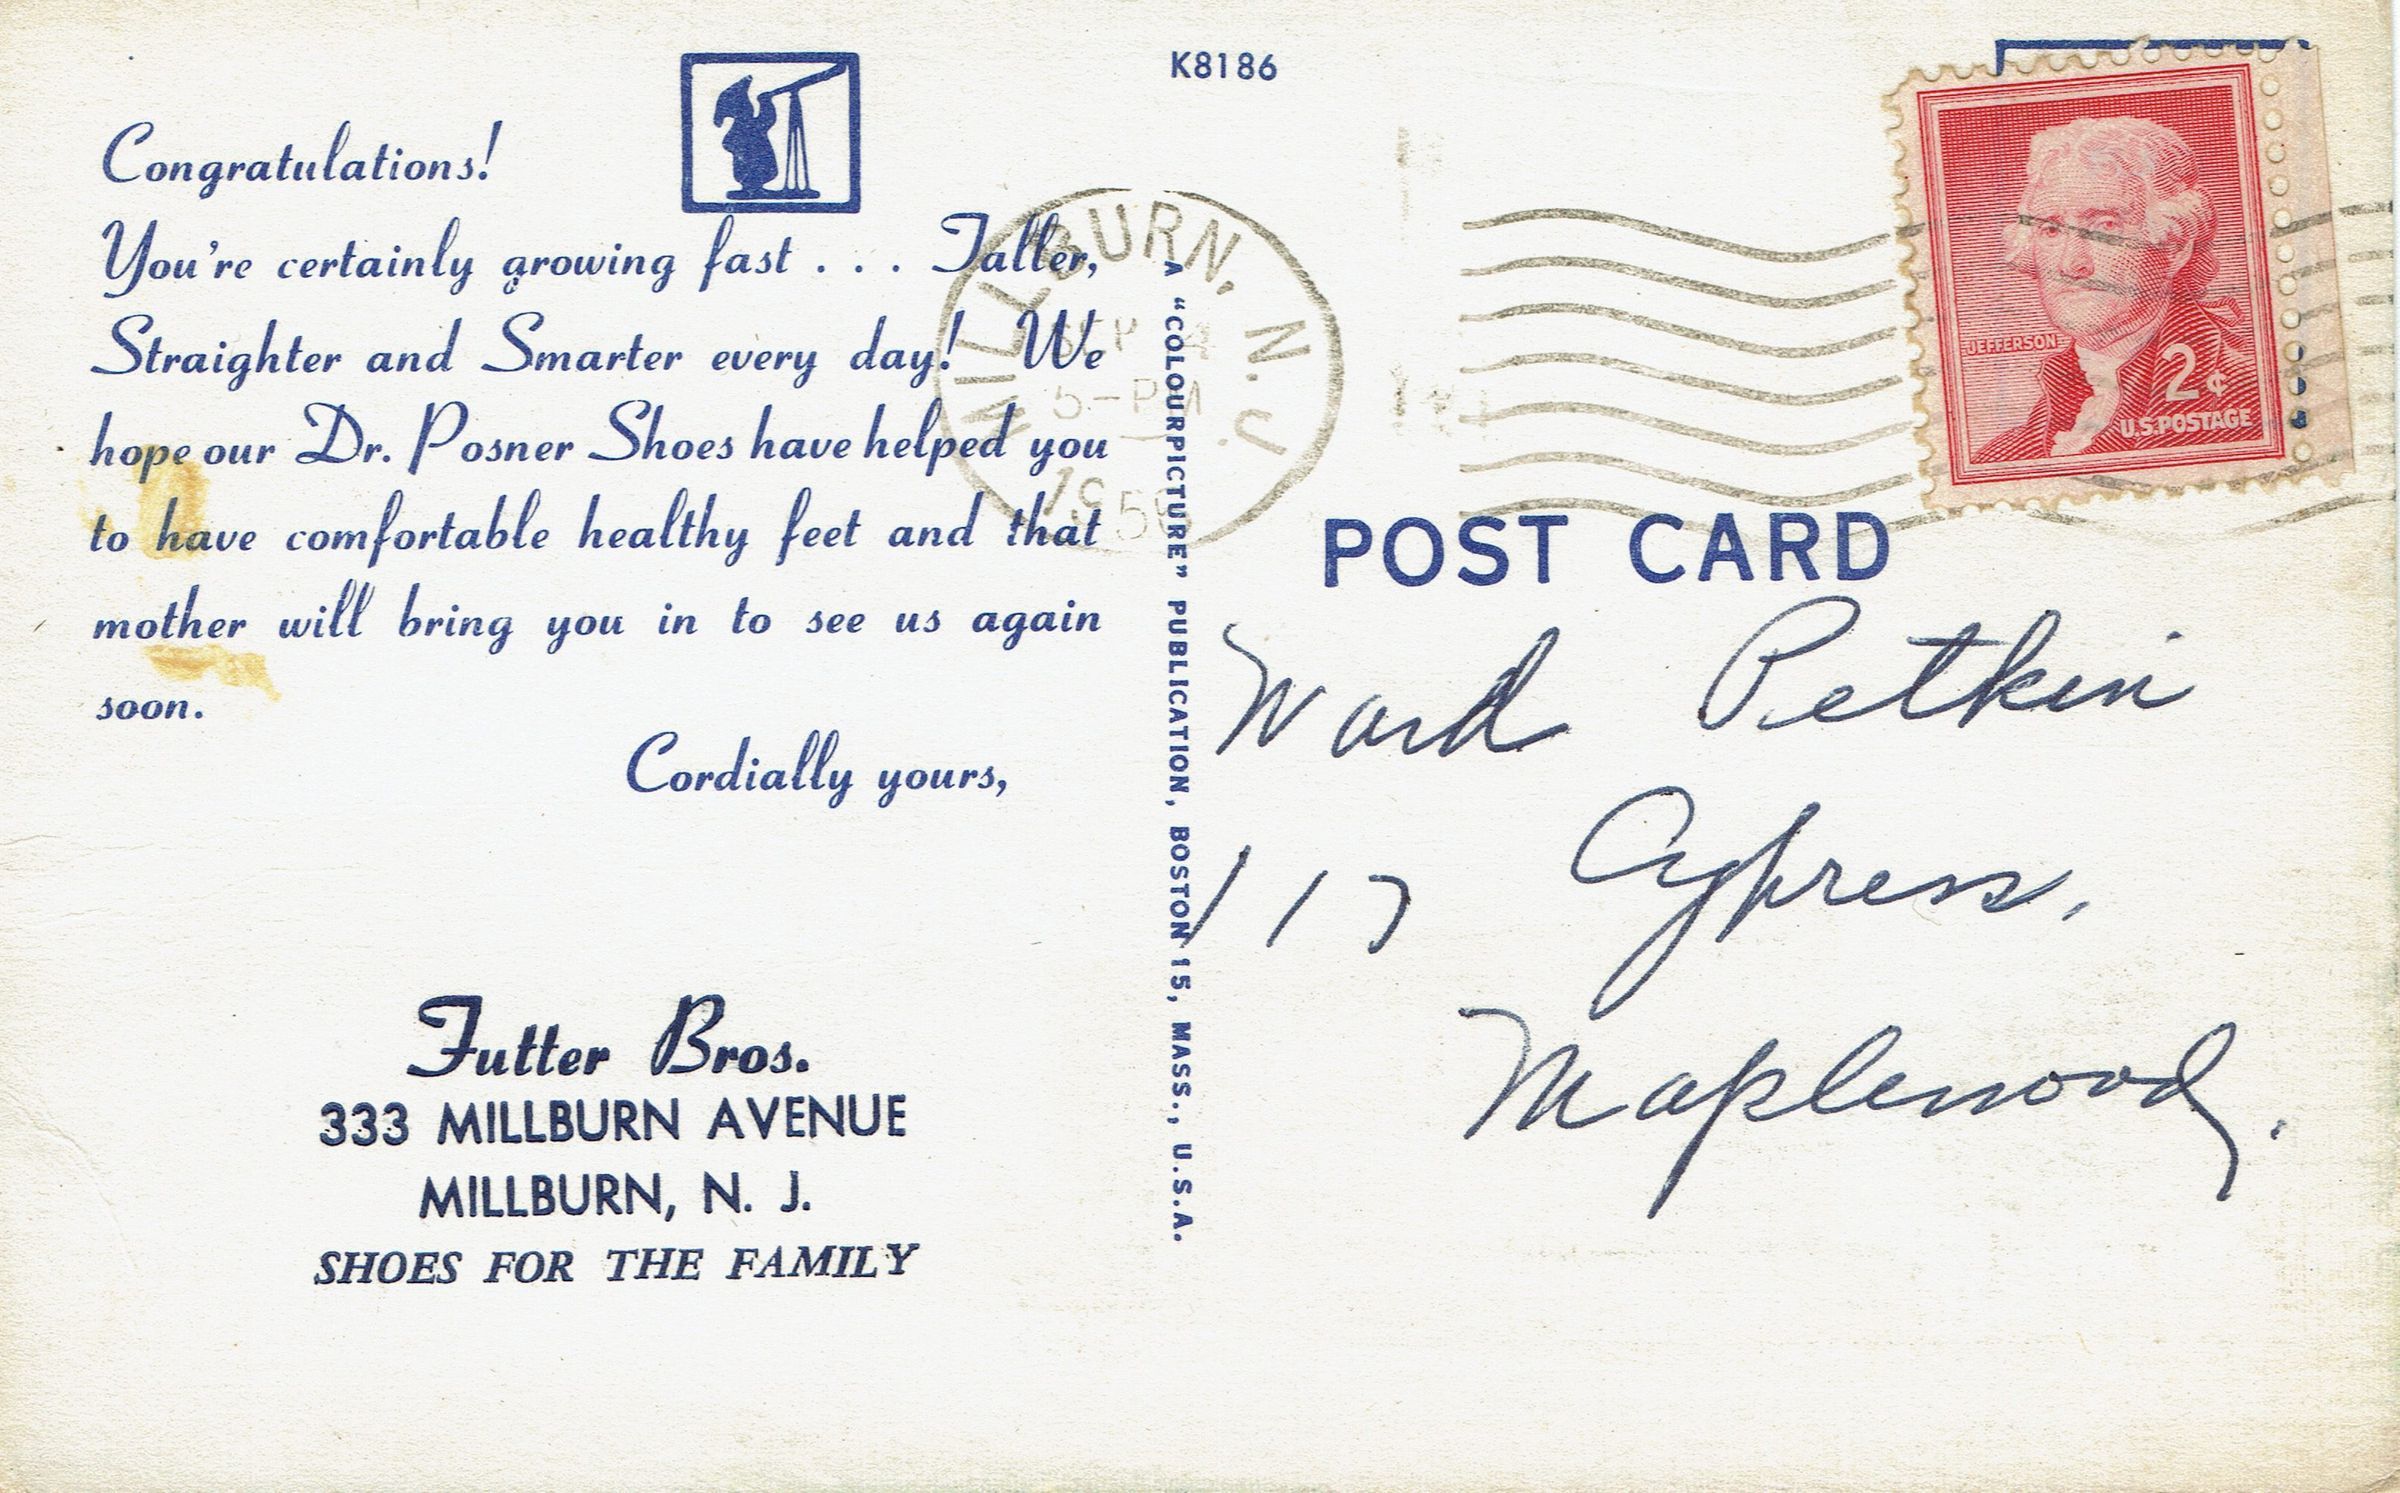 K8186
Congratulations!
You're certainly growing fast . . . Taller,
Straighter and Smarter every day! We
hope our Dr. Posner Shoes have helped you
to have comfortable healthy feet and that
mother will bring you in to see us again
soon.
Cordially yours,
Futter Bros.
333 MILLBURN AVENUE
MILLBURN, N. J.
SHOES FOR THE FAMILY
A "COLOURPICTURE" PUBLICATION, BOSTON 15, MASS., U.S.A.
MILLBURN, N.J.
5-PM
JEFFERSON
2¢
U.S. POSTAGE
POST CARD
Ward Petkin
117 Cypress,
Maplewood.